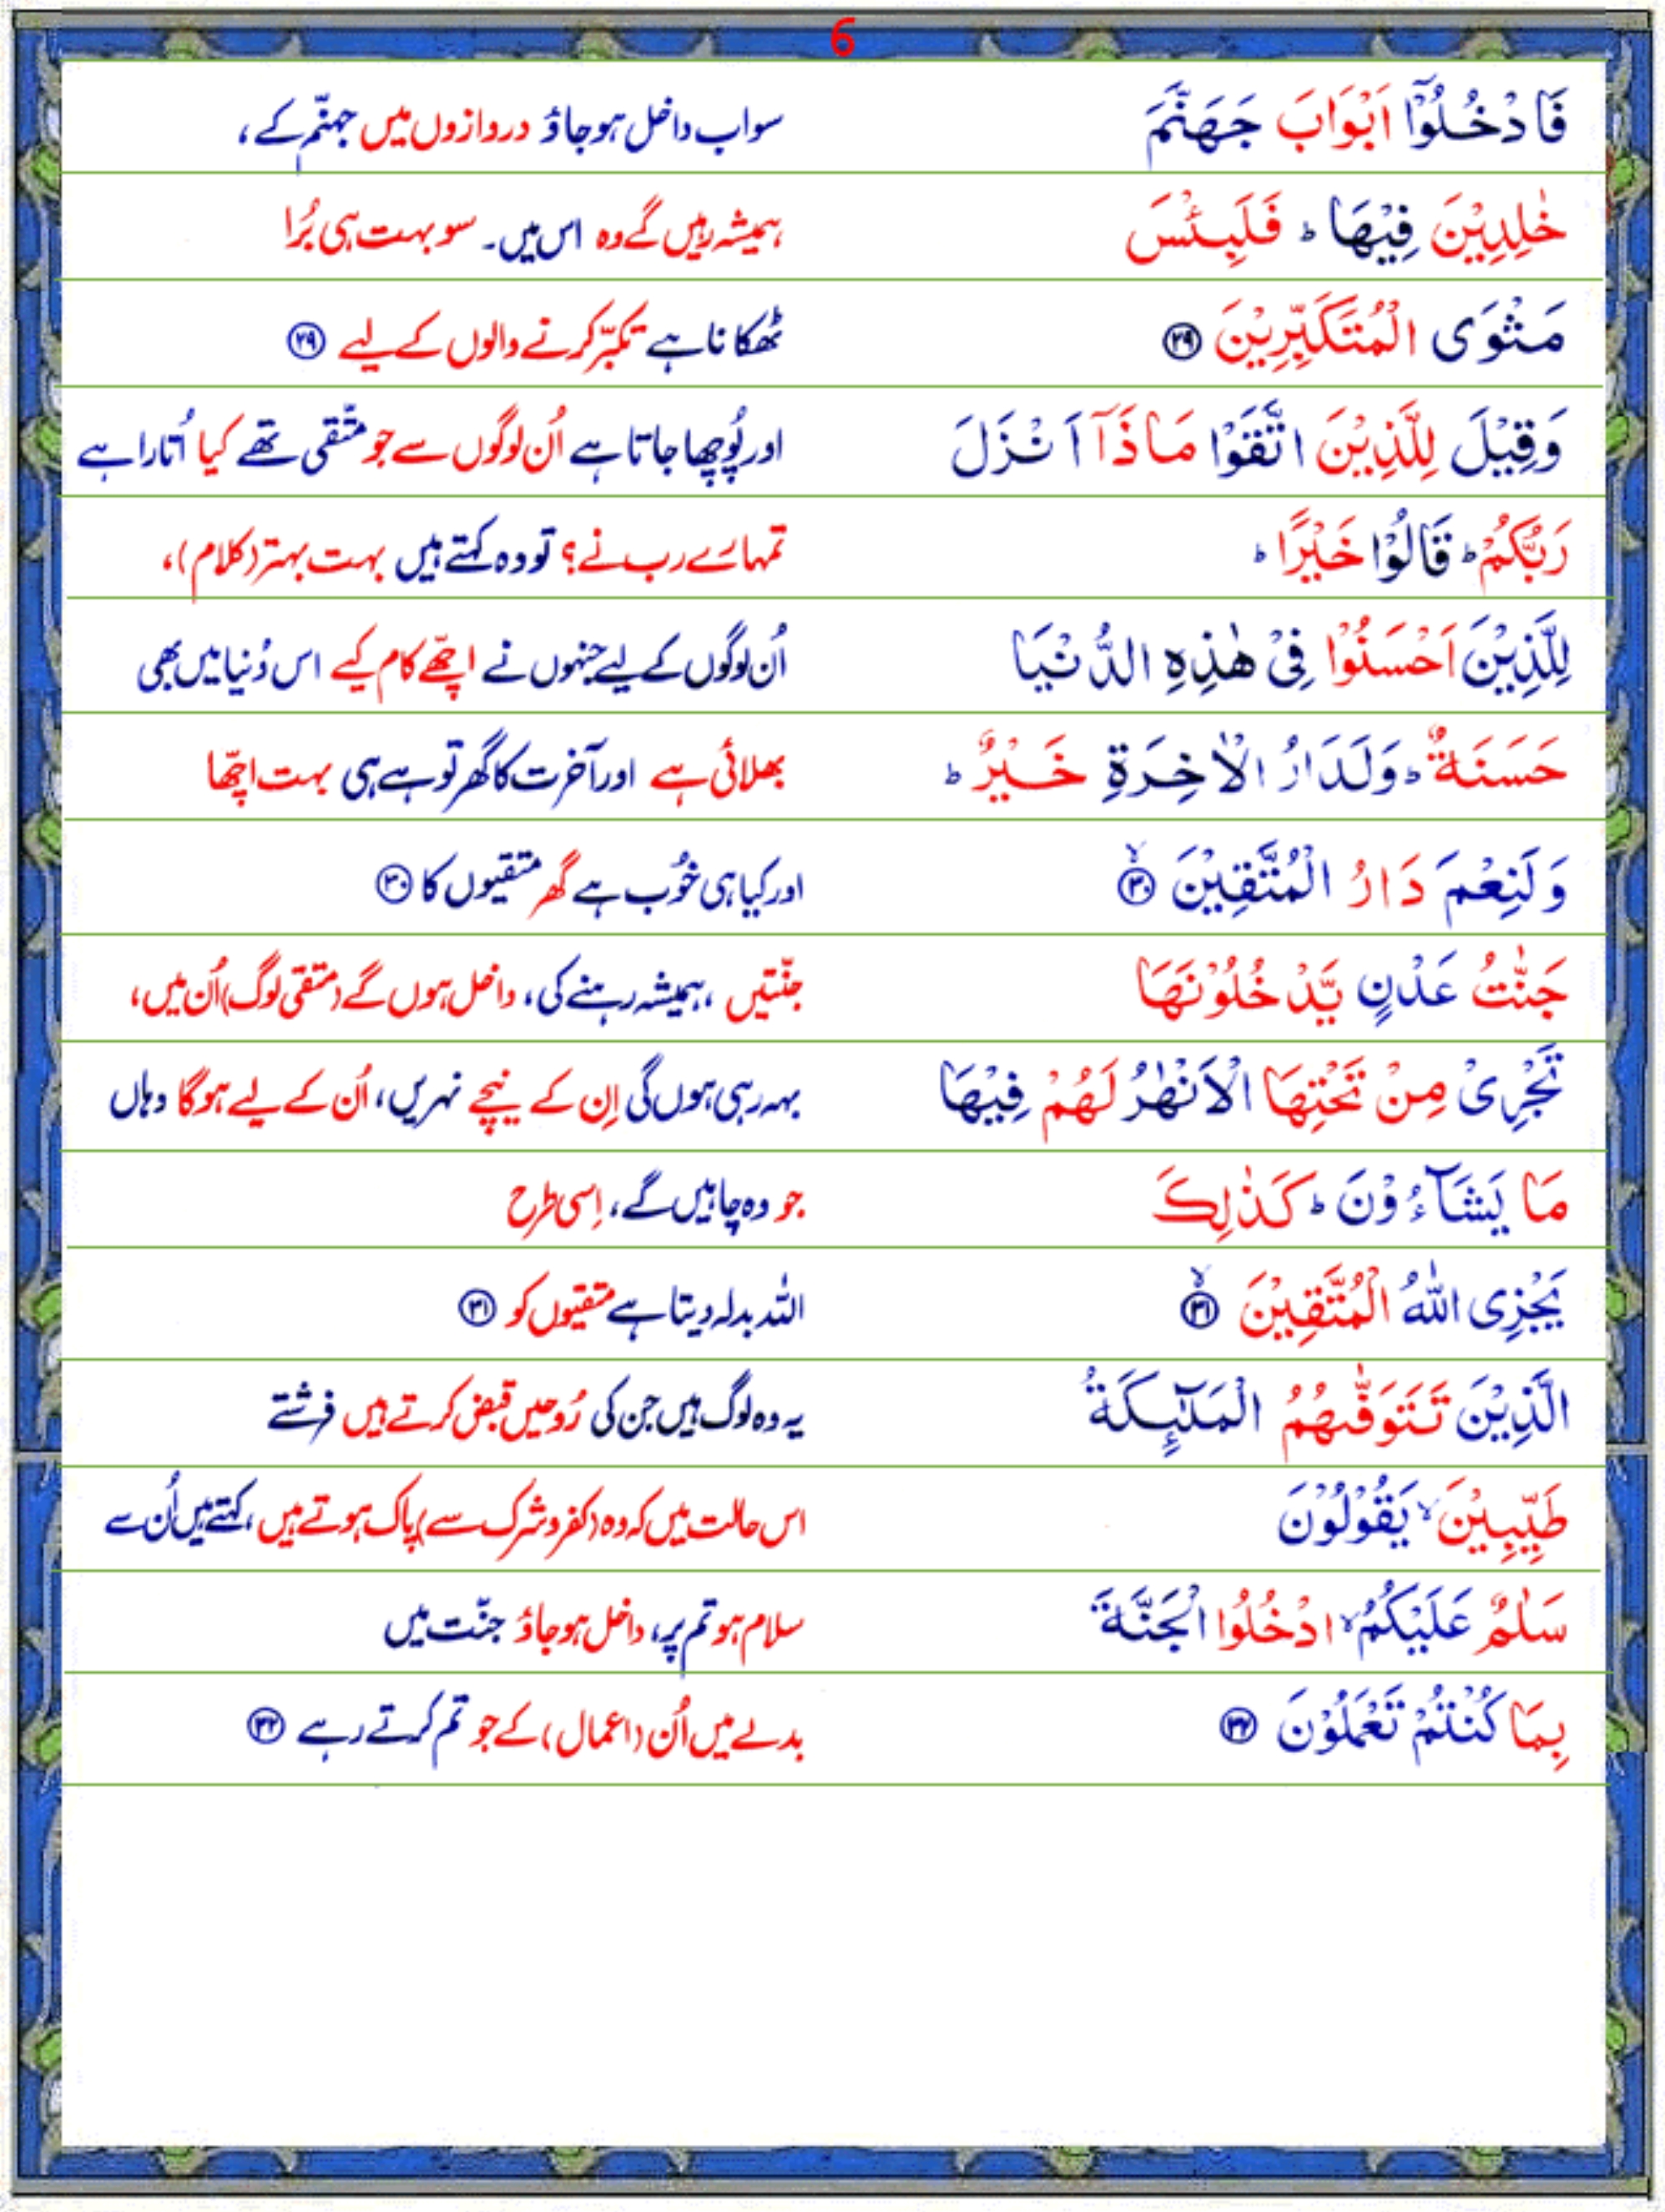 6
فَادْخُلُوْٓا اَبْوَابَ جَهَنَّمَ سو اب داخل ہوجاؤ دروازوں میں جہنّم کے،
خٰلِدِيْنَ فِيْهَا ؕ فَلَبِئْسَ ہمیشہ رہیں گے وہ اس میں۔ سو بہت ہی بُرا
مَثْوَى الْمُتَكَبِّرِيْنَ ۲۹ ٹھکانا ہے تکبّر کرنے والوں کے لیے ۲۹
وَقِيْلَ لِلَّذِيْنَ اتَّقَوْا مَاذَآ اَنْزَلَ اور پُوچھا جاتا ہے اُن لوگوں سے جو متّقی تھے کیا اُتارا ہے
رَبُّكُمْ ؕ قَالُوْا خَيْرًا ؕ تمہارے رب نے؟ تو وہ کہتے ہیں بہت بہتر (کلام)،
لِلَّذِيْنَ اَحْسَنُوْا فِىْ هٰذِهِ الدُّنْيَا اُن لوگوں کے لیے جنہوں نے اچھّے کام کیے اس دُنیا میں بھی
حَسَنَةٌ ؕ وَلَدَارُ الْاٰخِرَةِ خَيْرٌ ؕ بھلائی ہے اور آخرت کا گھر تو ہے ہی بہت اچھّا
وَلَنِعْمَ دَارُ الْمُتَّقِيْنَ ۳۰ۙ اور کیا ہی خُوب ہے گھر متقیوں کا ۳۰
جَنّٰتُ عَدْنٍ يَّدْخُلُوْنَهَا جنّتیں ،ہمیشہ رہنے کی، داخل ہوں گے (متقی لوگ) اُن میں،
تَجْرِىْ مِنْ تَحْتِهَا الْاَنْهٰرُ لَهُمْ فِيْهَا بہہ رہی ہوں گی اِن کے نیچے نہریں، اُن کے لیے ہوگا وہاں
مَا يَشَآءُوْنَ ؕ كَذٰلِكَ جو وہ چاہیں گے، اِسی طرح
يَجْزِى اللّٰهُ الْمُتَّقِيْنَ ۳۱ۙ اللہ بدلہ دیتا ہے متقیوں کو ۳۱
الَّذِيْنَ تَتَوَفّٰهُمُ الْمَلٰٓئِكَةُ یہ وہ لوگ ہیں جن کی رُوحیں قبض کرتے ہیں فرشتے
طَيِّبِيْنَ ۙ يَقُوْلُوْنَ اس حالت میں کہ وہ (کفر و شرک سے) پاک ہوتے ہیں ،کہتے ہیں اُن سے
سَلٰمٌ عَلَيْكُمُ ۙ ادْخُلُوا الْجَنَّةَ سلام ہو تم پر، داخل ہوجاؤ جنّت میں
بِمَا كُنْتُمْ تَعْمَلُوْنَ ۳۲ بدلے میں اُن (اعمال) کے جو تم کرتے رہے ۳۲